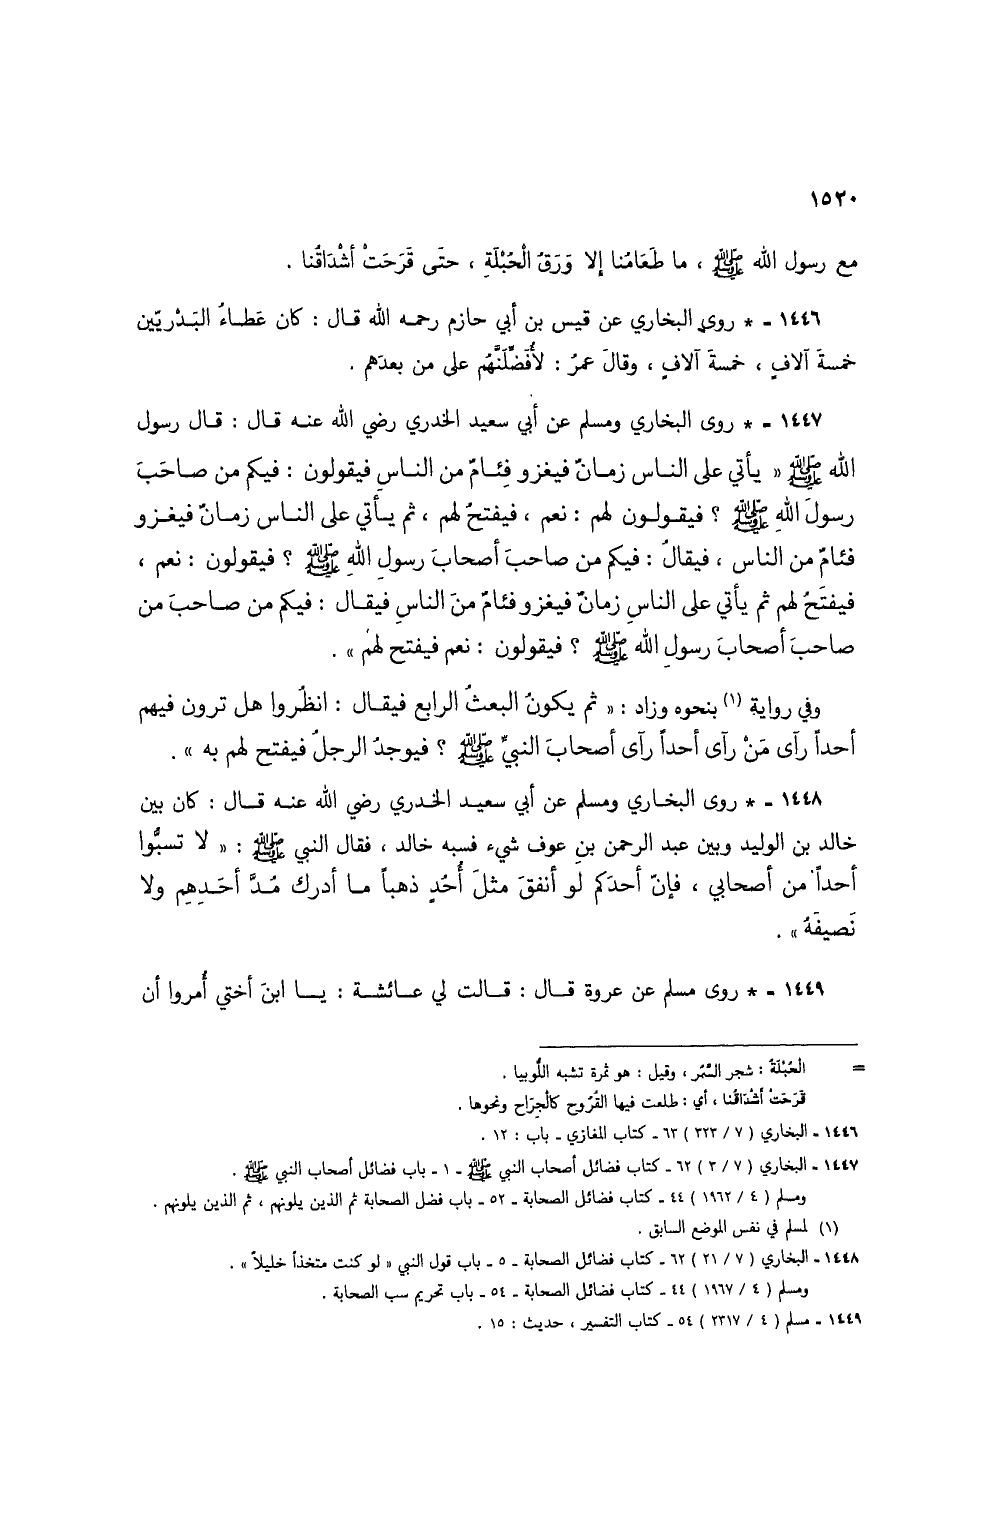 ١٥٢٠
مع رسول الله ﷺ ، ما طَعَامُنا إلا وَرَقُ الْحُبْلَةِ ، حتَى قَرَحَتْ أشْدَاقُنا .
١٤٤٦ - * روى البخاري عن قيس بن أبي حازم رحمه الله قال : كان عَطاءُ البَدْريّين
خمسةَ آلافٍ ، خمسةَ آلافٍ ، وقالَ عمرُ : لأُفَضِّلَنَّهُم على من بعدَهم .
١٤٤٧ - * روى البخاري ومسلم عن أبي سعيد الخدري رضي الله عنه قال : قال رسول
الله ﷺ « يأتي على الناس زمانٌ فيغزو فِئامٌ من الناسِ فيقولون : فيكم من صاحَبَ
رسولَ اللهِ ﷺ ؟ فيقولون لهم : نعم ، فيفتحُ لهم ، ثم يأتي على الناس زمانٌ فيغزو
فئامٌ من الناس ، فيقالُ : فيكم من صاحبَ أصحابَ رسولِ اللهِ ﷺ ؟ فيقولون : نعم ،
فيفتَحُ لهم ثم يأتي على الناسِ زمانٌ فيغزو فئامٌ منَ الناسِ فيقال : فيكم من صاحبَ من
صاحبَ أصحابَ رسولِ الله ﷺ ؟ فيقولون : نعم فيفتح لهُم » .
وفي روايةٍ (١) بنحوه وزاد : « ثم يكونُ البعثُ الرابع فيقال : انظُروا هل ترون فيهم
أحداً رآى مَنْ رآى أحداً رآى أصحابَ النبيِّ ﷺ ؟ فيوجدُ الرجلُ فيفتح لهم به » .
١٤٤٨ - * روى البخاري ومسلم عن أبي سعيد الخدري رضي الله عنه قال : كان بين
خالد بن الوليد وبين عبد الرحمن بنِ عوف شيء فسبه خالد ، فقال النبي ﷺ : « لا تسبُّوا
أحداً من أصحابي ، فإنّ أحدَكم لو أنفقَ مثلَ أُحُدٍ ذهباً ما أدرك مُدَّ أحَدِهِم ولا
نَصيفَهُ » .
١٤٤٩ - * روى مسلم عن عروة قال : قالت لي عائشة : يا ابنَ أختي أُمروا أن
= الْحُبْلَةُ : شجر السَّمُر ، وقيل : هو ثمرة تشبه اللُّوبيا .
قَرَحَتْ أشْدَاقُنا ، أي : طلعت فيها القُرُوح كالْجِرَاح ونحوها .
١٤٤٦ - البخاري ( ٧ / ٣٢٣ ) ٦٣ - كتاب المغازي - باب : ١٢ .
١٤٤٧ - البخاري ( ٧ / ٣ ) ٦٢ - كتاب فضائل أصحاب النبي ﷺ - ١ - باب فضائل أصحاب النبي ﷺ .
ومسلم ( ٤ / ١٩٦٢ ) ٤٤ - كتاب فضائل الصحابة - ٥٢ - باب فضل الصحابة ثم الذين يلونهم ، ثم الذين يلونهم .
(١) لمسلم في نفس الموضع السابق .
١٤٤٨ - البخاري ( ٧ / ٢١ ) ٦٢ - كتاب فضائل الصحابة - ٥ - باب قول النبي « لو كنت متخذاً خليلاً » .
ومسلم ( ٤ / ١٩٦٧ ) ٤٤ - كتاب فضائل الصحابة - ٥٤ - باب تحريم سب الصحابة .
١٤٤٩ - مسلم ( ٤ / ٢٣١٧ ) ٥٤ - كتاب التفسير ، حديث : ١٥ .